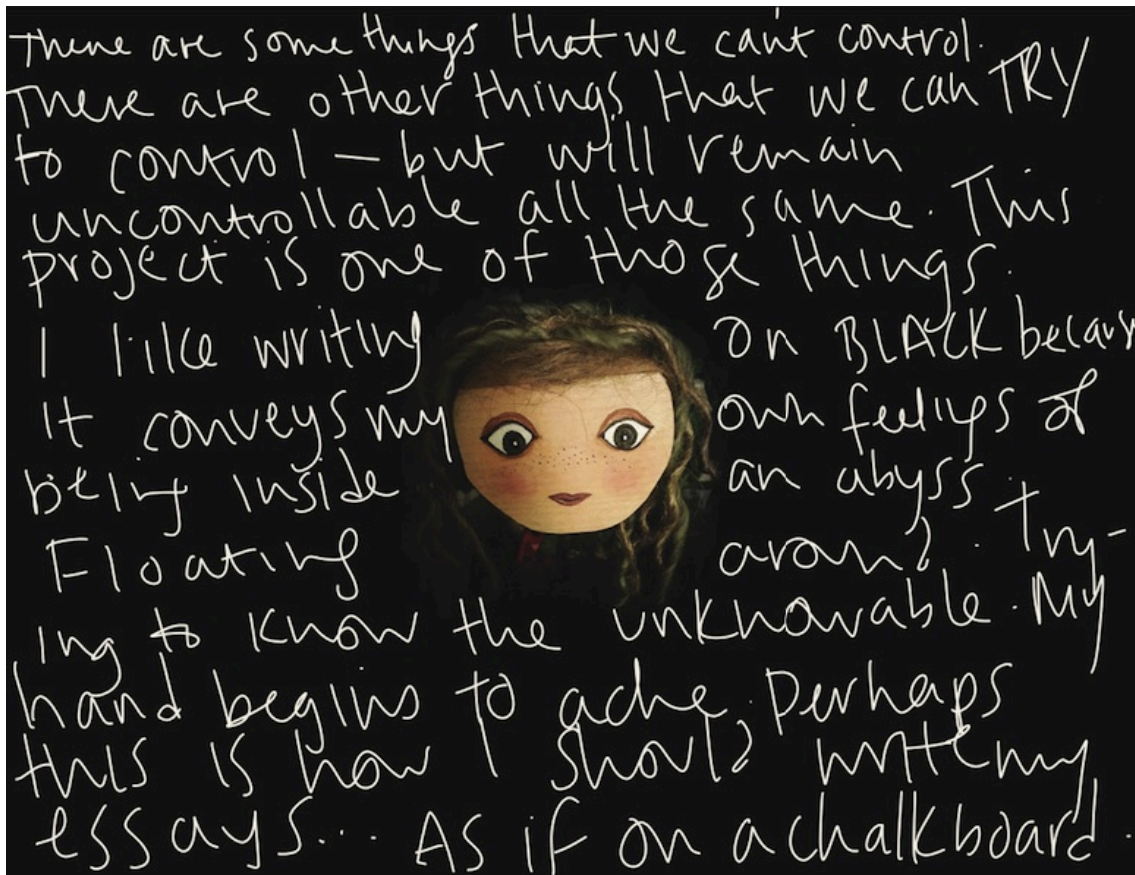 There are some things that we can't control.
There are other things that we can TRY
to control — but will remain
uncontrollable all the same. This
project is one of those things.
I like writing on BLACK because
it conveys my own feelings of
being inside an abyss.
Floating around. Try-
ing to know the unknowable. My
hand begins to ache. Perhaps
this is how I should write my
essays... As if on a chalkboard.